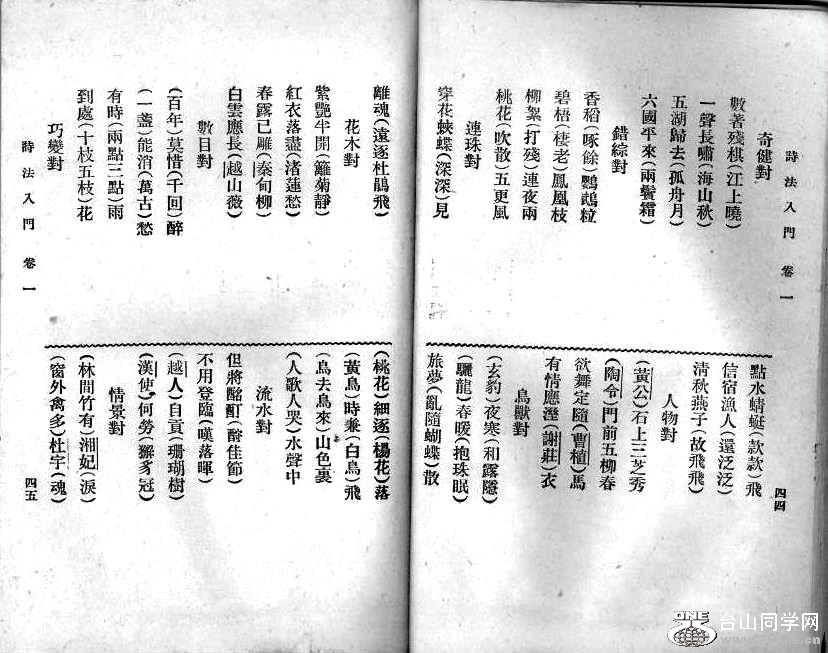 詩法入門 卷一
奇健對
數著殘棋(江上曉)
一聲長嘯(海山秋)
五湖歸去(孤舟月)
六國平來(兩鬢霜)
錯綜對
香稻(啄餘)鸚鵡粒
碧梧(棲老)鳳凰枝
柳絮(打殘)連夜雨
桃花(吹散)五更風
連珠對
穿花蛺蝶(深深)見
點水蜻蜓(款款)飛
信宿漁人(還泛泛)
清秋燕子(故飛飛)
人物對
(黃公)石上三芝秀
(陶令)門前五柳春
欲舞定隨(曹植)馬
有情應溼(謝莊)衣
鳥獸對
(玄豹)夜寒(和露隱)
(驪龍)春暖(抱珠眠)
旅夢(亂隨蝴蝶)散
四四
離魂(遠逐杜鵑飛)
花木對
紫艷半開(籬菊靜)
紅衣落盡(渚蓮愁)
春露已雕(秦甸柳)
白雲應長(越山薇)
數目對
(百年)莫惜(千回)醉
(一盞)能消(萬古)愁
有時(兩點三點)雨
到處(十枝五枝)花
巧變對
詩法入門 卷一
(桃花)細逐(楊花)落
(黃鳥)時兼(白鳥)飛
(鳥去鳥來)山色裏
(人歌人哭)水聲中
流水對
但將酩酊(酧佳節)
不用登臨(嘆落暉)
(越人)自貢(珊瑚樹)
(漢使)何勞(獬豸冠)
情景對
(林間竹有)湘妃(淚)
(窗外禽多)杜宇(魂)
四五
ONE
台山同学网